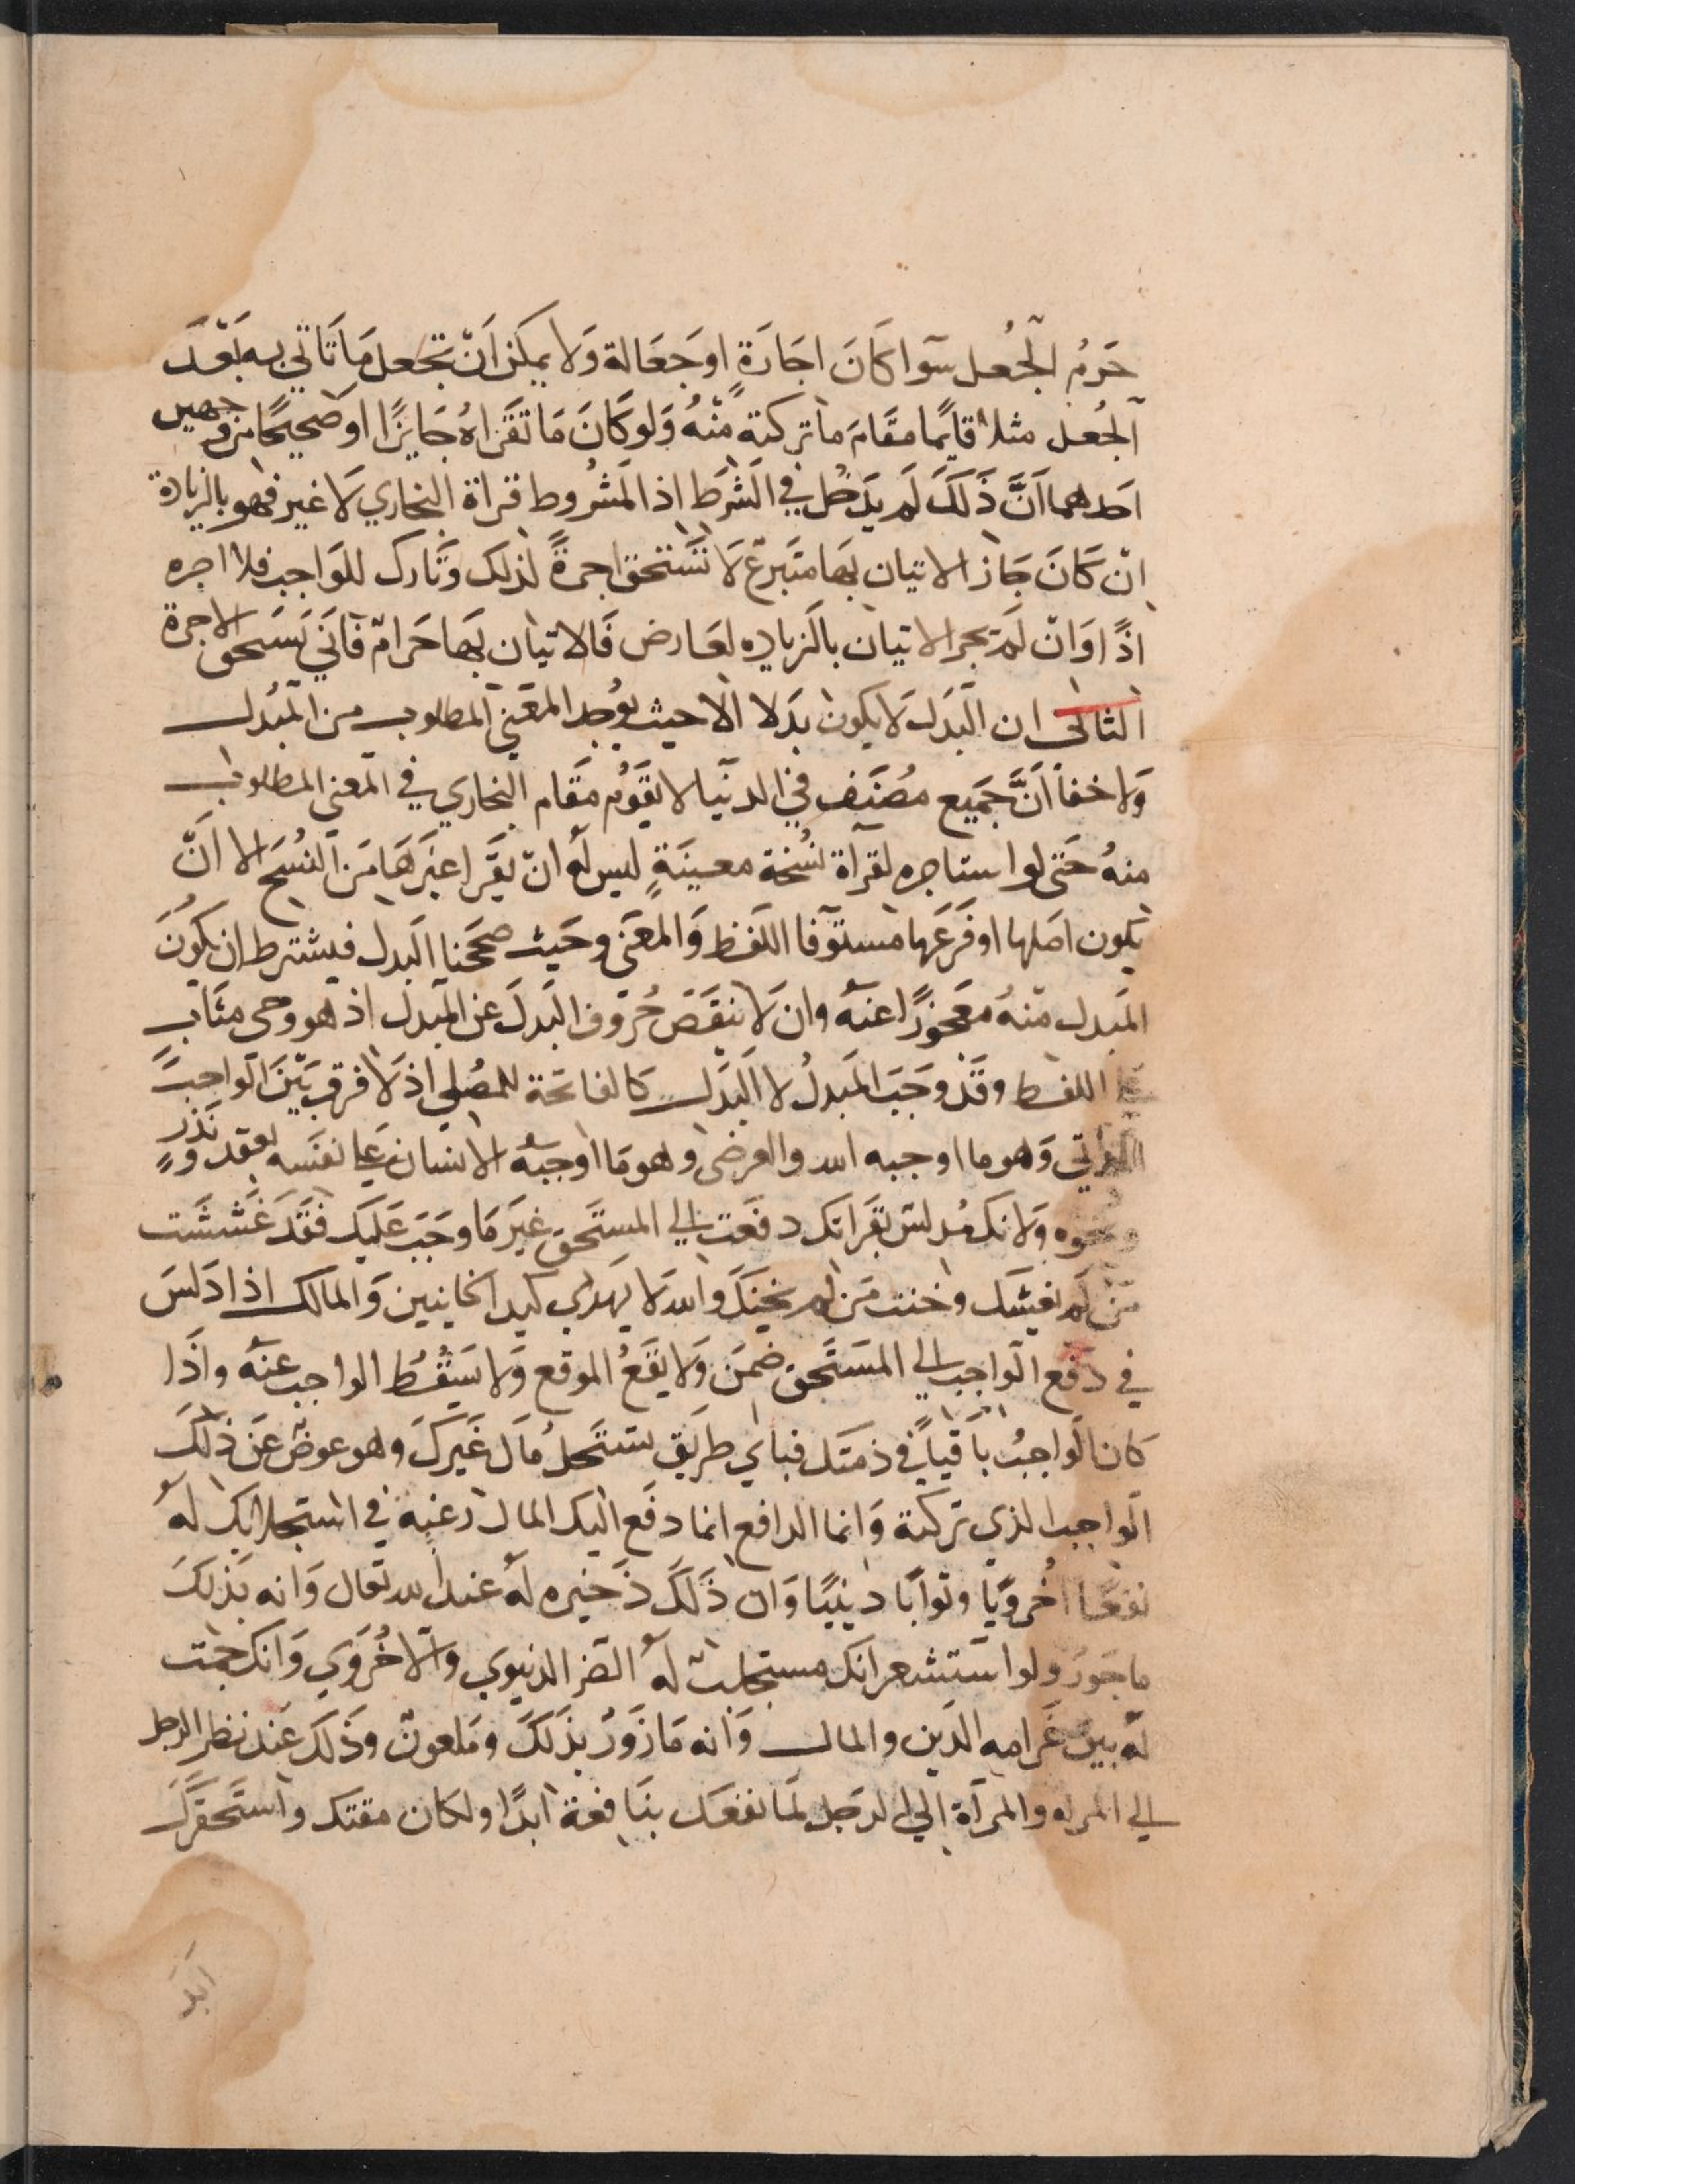 حَرُم الجُعل سوآ كَانَ اجَارَةٍ اوجَعَالة وَلا يمكن اَنْ تجعل مَا تَاتي به بَعْدَ
الجُعل مثلا قايمًا مقامَ ما تركتة منْهُ وَلو كَانَ مَا تَقْرَاهُ جَايزًا او صحيحًا من وجهين
احدهما اَنَّ ذَلَكَ لَم يَدخُل في الشَرَط اذ المَشْرُوط قراة البخاري لَا غير فهو بالزيادة
انْ كَانَ جَاز الاتيان بهَا متَبرعٌ لَا تَسْتحق اجرةً لذلك وَتَارك للوَاجب فلا اجره
اذًا وَانْ لَم يجز الاتيان بالَزياده لعَارض فَالاتيان بهَا حَرامٌ فَانَي تَستحق الاجرة
الثاني ان البَدَل لَا يكون بدَلا الا حيث يوُجد المعَني المطلوب من المبُدل
وَلا خفأ اَنَّ جَميع مصُنَف في الدنيَا لا يقَوُم مقَام البخاري في المعَني المطلوب
منهُ حَتى لو استاجره لقرآة نسُخة معينَةٍ ليس لهُ انْ يقَرا غيَرهَا مَن النسُخ الا اَنْ
يكون اصَلها او فَرعَها مستوَفا اللفَظ وَالمعَني وحَيث صححَنا البَدل فيشترط ان يكوُنَ
المَبدل منهُ معَجوزًا عنهُ وان لَا ينقَصَ حُروَف البَدلَ عن المبدل اذ هو وحى مثَاب
عَلي اللفظ وقَدْ وجَبَ المَبدلُ لا البَدَل كالفاتحَة للمصُلي اذ لَا فرق بَيْنَ الوَاجبَ
الذاتي وَهو ما اوجبه الله والعرضى وهو مَا اوجبهُ الانسان عَلي نفسَه بعقد ونَذْرٍ
ونحَوه وَلانك مُدلس بقَراتك دفعَت الي المستَحق غيَر مَا وجَبَ عَليَك فقَد غَششَت
مَنْ لَم يغشك وخنت مَن لَم يخنكَ والله لَا يهَدي كيد الخاينين وَالمالك اذا دَلسَ
في دَفع الوَاجب الي المسَتَحق ضمَن وَلا يقَعُ الموقع وَلا يسَقُطُ الواجب عنهُ واذَا
كان الوَاجبُ باَقياً في ذمتَك فبَاي طرَيق تستَحلُ مَالَ غَيرَك وهو عوضٌ عَن ذلَكَ
الوَاجب الذي تَركتة وَانما الدافع انما دَفَع اليَك المال رغبة في استجلابك لهُ
نفعًا اُخرويًا وثوابًا دينيًا وَان ذَلَكَ ذَخيره لهُ عند الله تعَال وَانه بَذلكَ
ماجَورٌ ولو استشعر انك مستجلبٌ لهُ الضرَ الدنيوي والاُخرَوي وَانك جمعت
لهُ بينَ غَرامه الدَين والمال وَانه مَازوَرٌ بذلَكَ ومَلعونٌ وذَلكَ عَند نظر الرجل
الي المراه والمرآة الي الرجَل لمَا نفعَك بنَافعة ابدًا ولكان مقتك واستَحقَرَك
ابَدَ